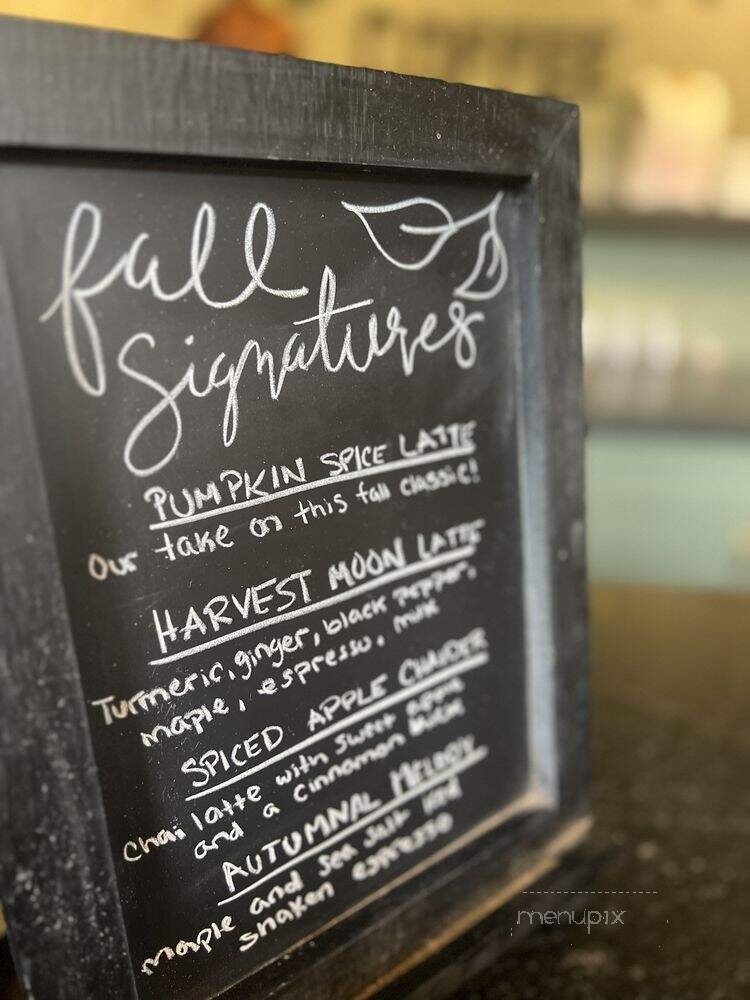 fall
signatures
PUMPKIN SPICE LATTE
Our take on this fall classic!
HARVEST MOON LATTE
Turmeric, ginger, black pepper,
maple, espresso, milk
SPICED APPLE CHAIDER
Chai latte with sweet apple
and a cinnamon
AUTUMNAL MELODY
maple and sea salt iced
shaken espresso
menupix